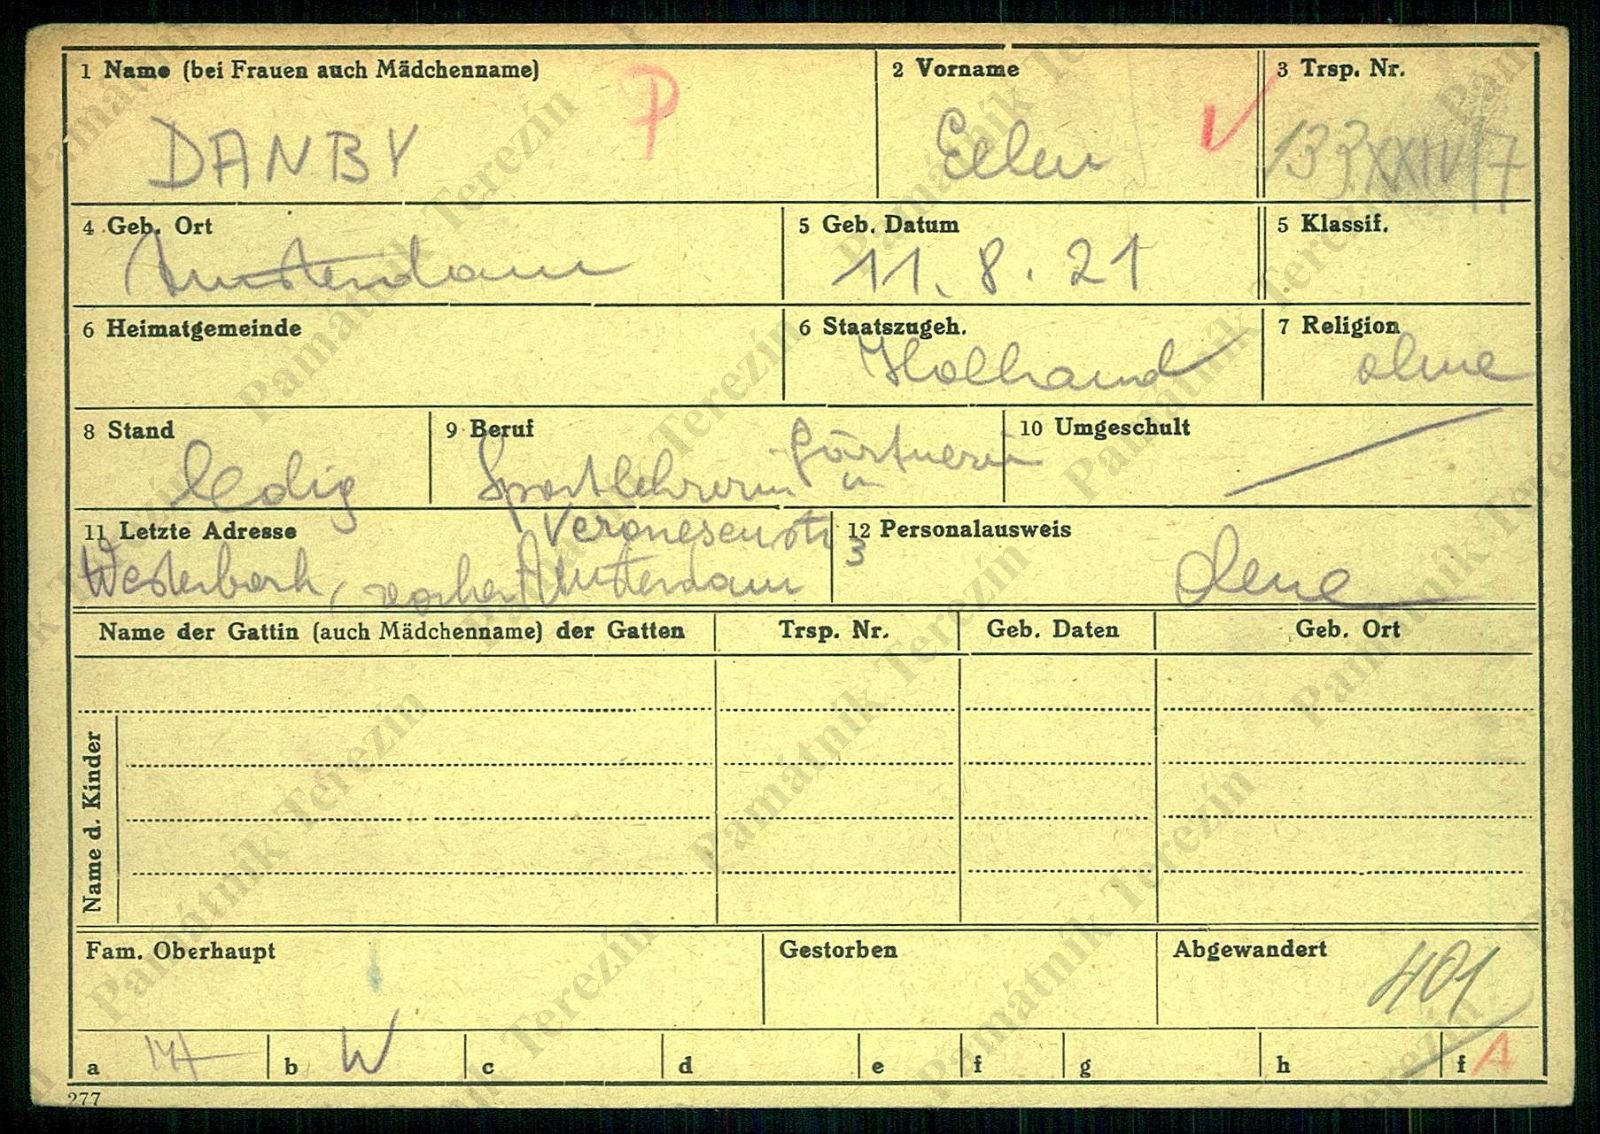 1 Name (bei Frauen auch Mädchenname)
P
2 Vorname
3 Trsp. Nr.
DANBY
Ellen
133 XXIV/7
4 Geb. Ort
5 Geb. Datum
5 Klassif.
Amsterdam
11. 8. 21
6 Heimatgemeinde
6 Staatszugeh.
7 Religion
Holland
ohne
8 Stand
9 Beruf
10 Umgeschult
ledig
Sportlehrerin u Gärtnerin
11 Letzte Adresse
12 Personalausweis
Veronesenstr 3
Westerbork, vorher Amsterdam
ohne
Name der Gattin (auch Mädchenname) der Gatten
Trsp. Nr.
Geb. Daten
Geb. Ort
Name d. Kinder
Fam. Oberhaupt
Gestorben
Abgewandert
401
a
b W
c
d
e
f
g
h
f A
277
Památník Terezín